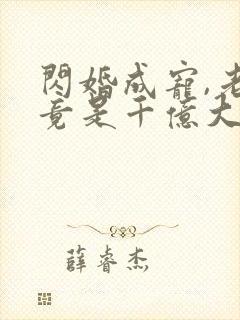 閃婚成寵,老
竟是千億大
薛睿杰